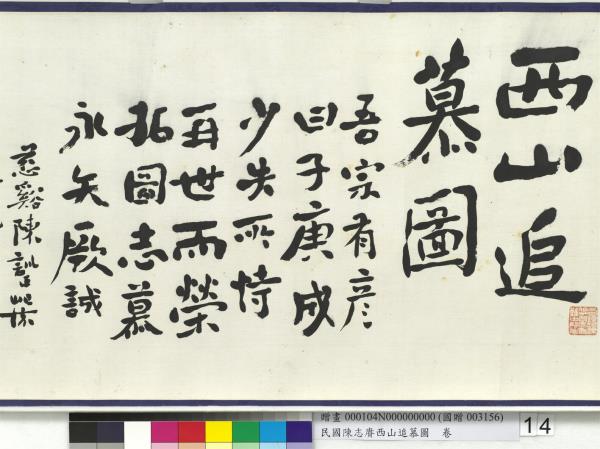 西山追
慕圖
吾宗有彥
曰子庚成
少失所恃
再世而榮
拓圖志慕
永矢厥誠
慈谿陳
贈畫 000104N000000000 (國贈 003156)
民國陳志賡西山追慕圖 卷
14